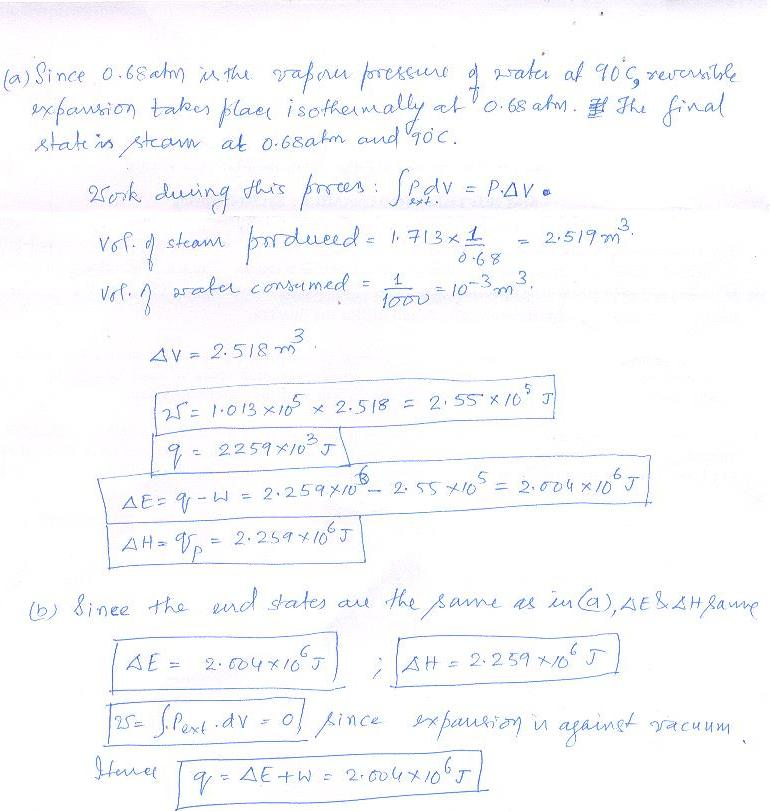 (a) Since 0.68 atm is the vapour pressure of water at 90°C, reversible
expansion takes place isothermally at 0.68 atm. The final
state is steam at 0.68atm and 90°C.
Work during this process: ∫P_ext. dV = P.ΔV.
Vol. of steam produced = 1.713 × 1/0.68 = 2.519 m³.
Vol. of water consumed = 1/1000 = 10⁻³ m³.
ΔV = 2.518 m³.
W = 1.013 × 10⁵ × 2.518 = 2.55 × 10⁵ J
q = 2259 × 10³ J
ΔE = q - W = 2.259 × 10⁶ - 2.55 × 10⁵ = 2.004 × 10⁶ J
ΔH = q_p = 2.259 × 10⁶ J
(b) Since the end states are the same as in (a), ΔE & ΔH same
ΔE = 2.004 × 10⁶ J ; ΔH = 2.259 × 10⁶ J
W = ∫P_ext . dV = 0, since expansion is against vacuum.
Hence q = ΔE + W = 2.004 × 10⁶ J